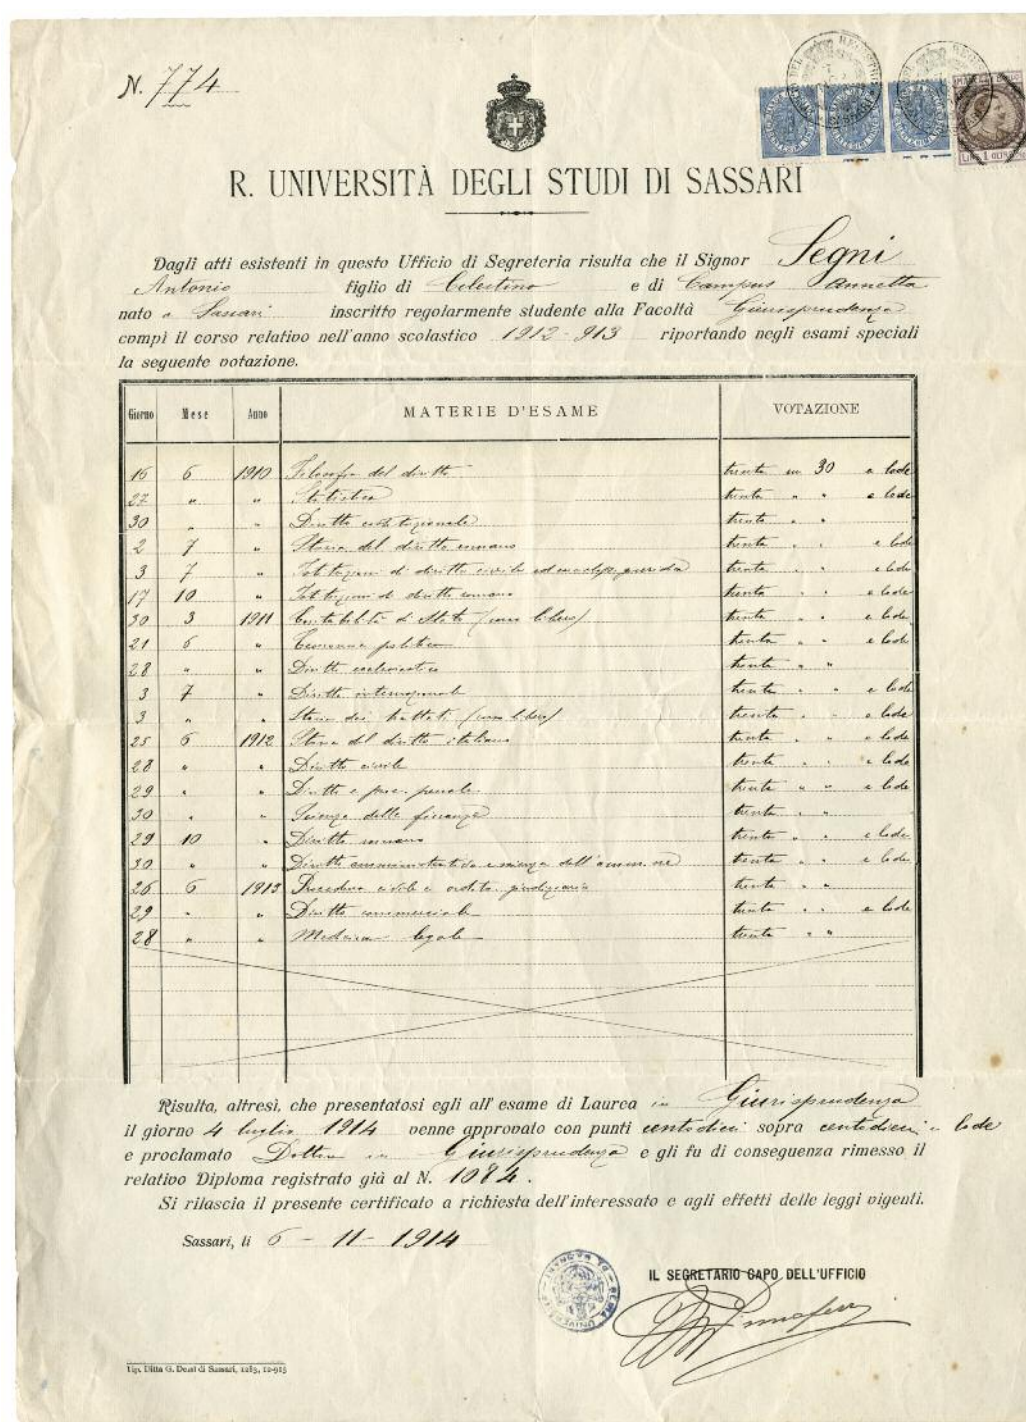 N. 774
R. UNIVERSITÀ DEGLI STUDI DI SASSARI
Dagli atti esistenti in questo Ufficio di Segreteria risulta che il Signor Segni
Antonio figlio di Celestino e di Campus Annetta
nato a Sassari inscritto regolarmente studente alla Facoltà Giurisprudenza
compì il corso relativo nell'anno scolastico 1912-913 riportando negli esami speciali
la seguente votazione.
Giorno Mese Anno MATERIE D'ESAME VOTAZIONE
16 6 1910 Filosofia del diritto trenta su 30 e lode
22 " " Statistica trenta " " e lode
30 " " Diritto costituzionale trenta " "
2 7 " Storia del diritto romano trenta " " e lode
3 7 " Istituzioni di diritto civile ed enciclop. giuridica trenta " " e lode
17 10 " Istituzioni di diritto romano trenta " " e lode
30 3 1911 Contabilità di Stato (corso libero) trenta " " e lode
21 6 " Economia politica trenta " " e lode
28 " " Diritto ecclesiastico trenta " "
3 7 " Diritto internazionale trenta " " e lode
3 " " Storia dei trattati (corso libero) trenta " " e lode
25 6 1912 Storia del diritto italiano trenta " " e lode
28 " " Diritto civile trenta " " e lode
29 " " Diritto e proc. penale trenta " " e lode
30 " " Scienza delle finanze trenta " "
29 10 " Diritto romano trenta " " e lode
30 " " Diritto amministrativo e scienza dell'amm.ne trenta " " e lode
26 6 1913 Procedura civile e ordin. giudiziario trenta " "
29 " " Diritto commerciale trenta " " e lode
28 " " Medicina legale trenta " "
Risulta, altresì, che presentatosi egli all'esame di Laurea in Giurisprudenza
il giorno 4 luglio 1914 venne approvato con punti centodieci sopra centodieci e lode
e proclamato Dottore in Giurisprudenza e gli fu di conseguenza rimesso il
relativo Diploma registrato già al N. 1084.
Si rilascia il presente certificato a richiesta dell'interessato e agli effetti delle leggi vigenti.
Sassari, li 6 - 11 - 1914
IL SEGRETARIO CAPO DELL'UFFICIO
Tip. Ditta G. Dessì di Sassari,